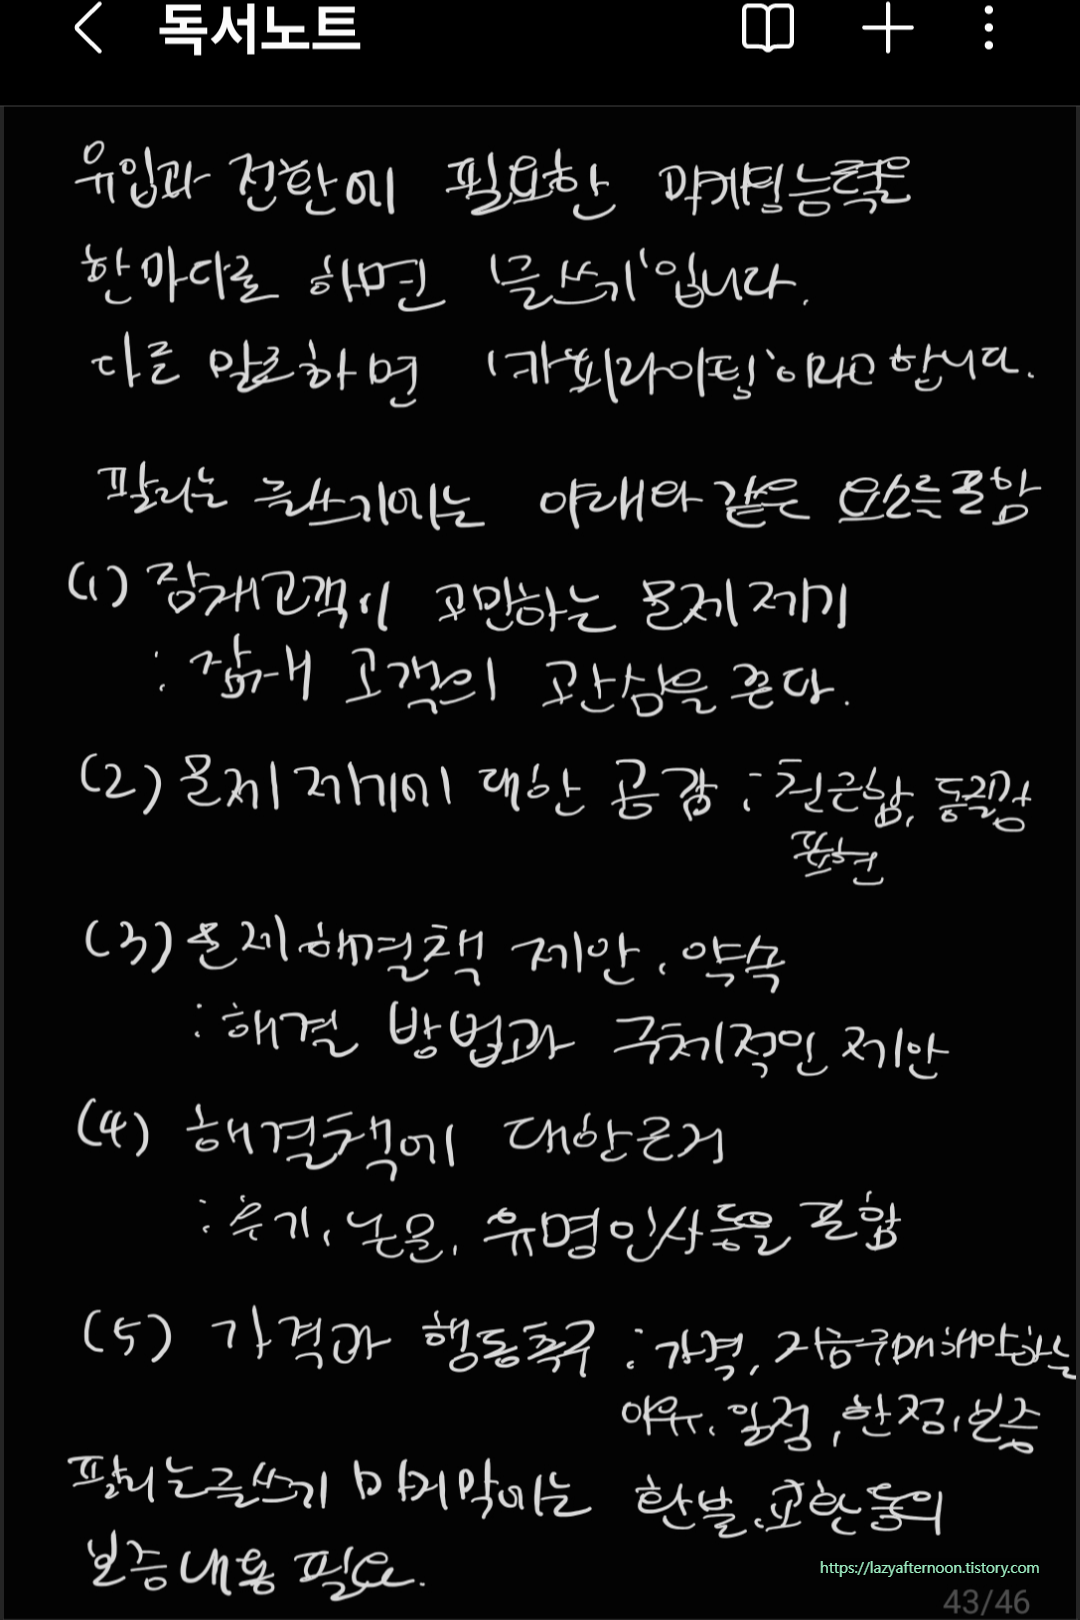 독서노트
유입과 전환에 필요한 마케팅능력을
한마디로 하면 '글쓰기'입니다.
다른 말로하면 '카피라이팅'이라고 합니다.
팔리는 글쓰기에는 아래와 같은 요소를 포함
(1) 잠재고객이 고민하는 문제 제기
: 잠재 고객의 관심을 끈다.
(2) 문제 제기에 대한 공감 : 친근함, 동질감
표현
(3) 문제해결책 제안, 약속
: 해결 방법과 구체적인 제안
(4) 해결책에 대한 근거
: 후기, 논문, 유명인사 등을 포함
(5) 가격과 행동촉구 : 가격, 지금구매해야하는
이유, 일정, 한정, 보증
팔리는글쓰기 마지막에는 환불, 교환 등의
보증내용 필요.
https://lazyafternoon.tistory.com
43/46